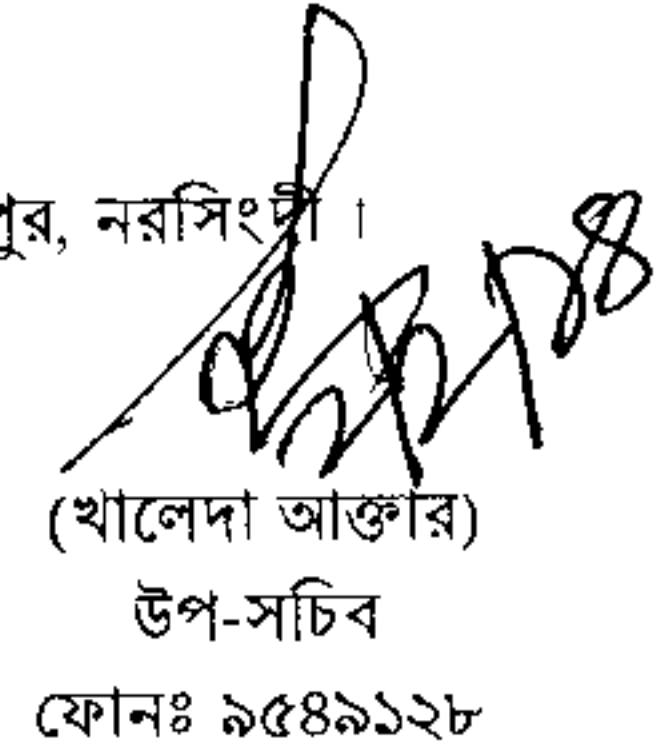 পুর, নরসিংদী ।
(খালেদা আক্তার)
উপ-সচিব
ফোনঃ ৯৫৪৯১২৮